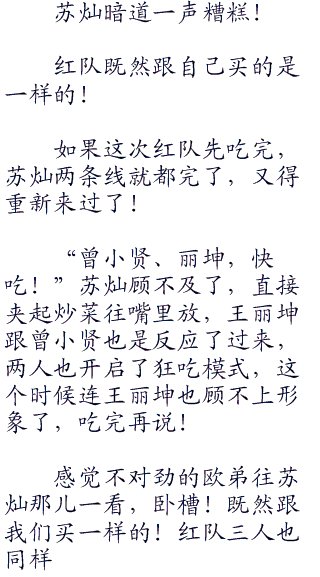 苏灿暗道一声糟糕！
红队既然跟自己买的是
一样的！
如果这次红队先吃完，
苏灿两条线就都完了，又得
重新来过了！
“曾小贤、丽坤，快
吃！”苏灿顾不及了，直接
夹起炒菜往嘴里放，王丽坤
跟曾小贤也是反应了过来，
两人也开启了狂吃模式，这
个时候连王丽坤也顾不上形
象了，吃完再说！
感觉不对劲的欧弟往苏
灿那儿一看，卧槽！既然跟
我们买一样的！红队三人也
同样